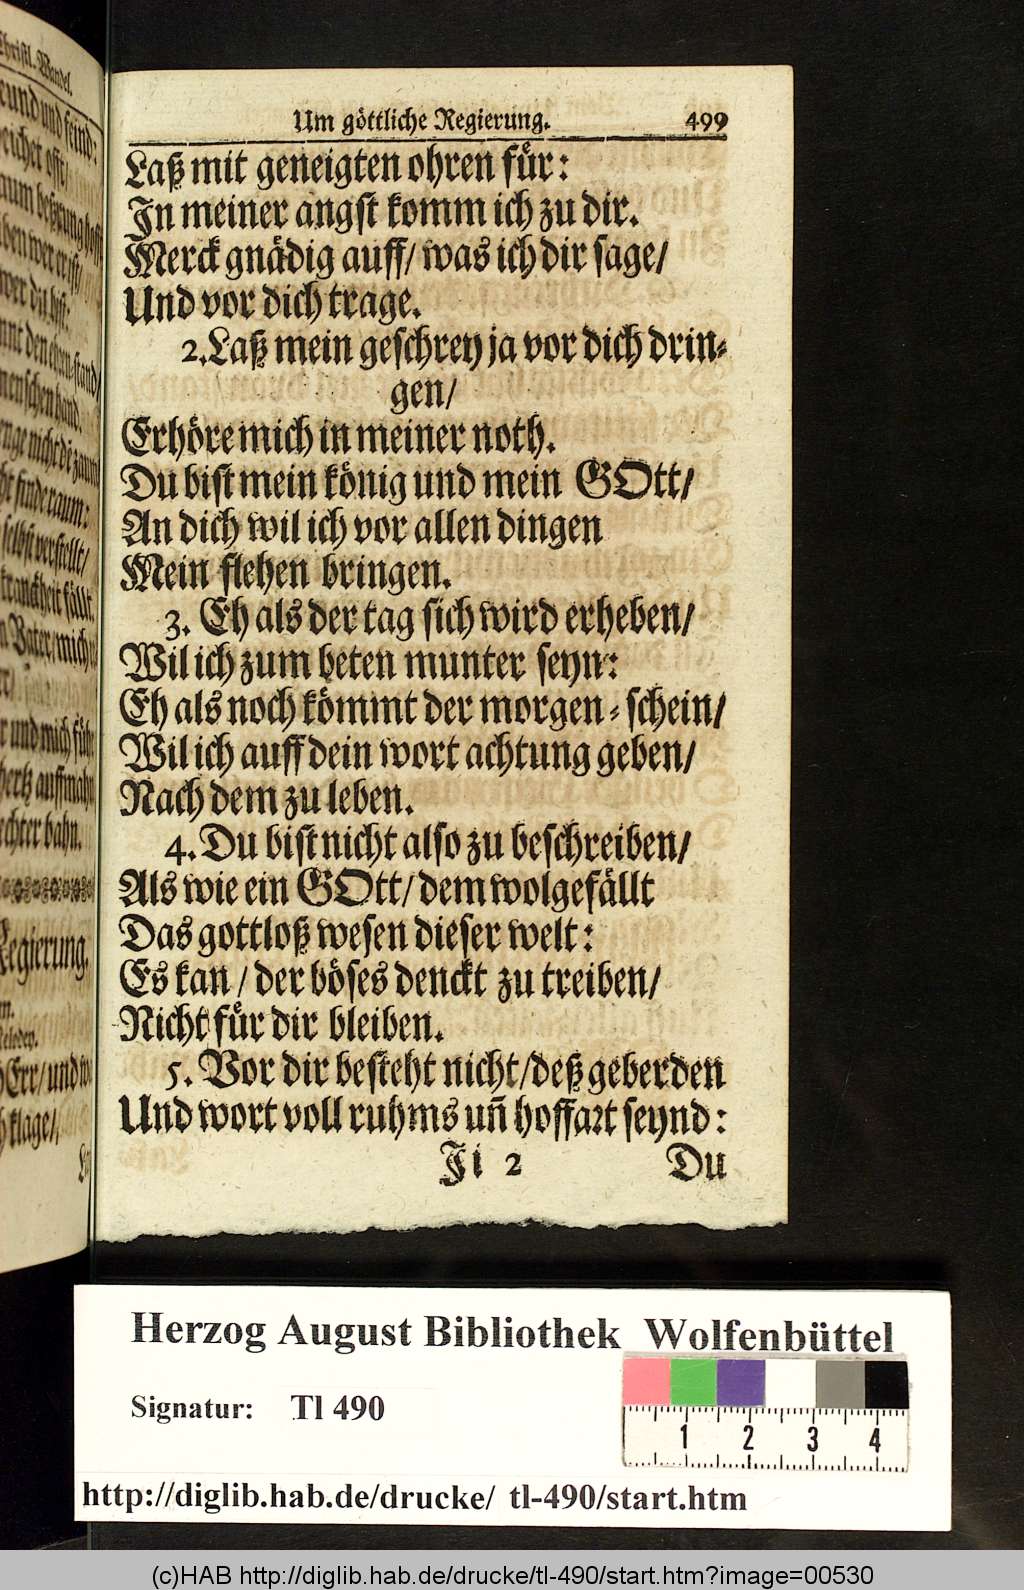 Christl. Wandel.
Um göttliche Regierung. 499
Laß mit geneigten ohren für:
In meiner angst komm ich zu dir.
Merck gnädig auff/ was ich dir sage/
Und vor dich trage.
2. Laß mein geschrey ja vor dich drin-
gen/
Erhöre mich in meiner noth.
Du bist mein könig und mein GOtt/
An dich wil ich vor allen dingen
Mein flehen bringen.
3. Eh als der tag sich wird erheben/
Wil ich zum beten munter seyn:
Eh als noch kömmt der morgen-schein/
Wil ich auff dein wort achtung geben/
Nach dem zu leben.
4. Du bist nicht also zu beschreiben/
Als wie ein GOtt/ dem wolgefällt
Das gottloß wesen dieser welt:
Es kan/ der böses denckt zu treiben/
Nicht für dir bleiben.
5. Vor dir besteht nicht/ deß geberden
Und wort voll ruhms uñ hoffart seynd:
Ji 2 Du
Herzog August Bibliothek Wolfenbüttel
Signatur: Tl 490
1 2 3 4
http://diglib.hab.de/drucke/ tl-490/start.htm
(c)HAB http://diglib.hab.de/drucke/tl-490/start.htm?image=00530